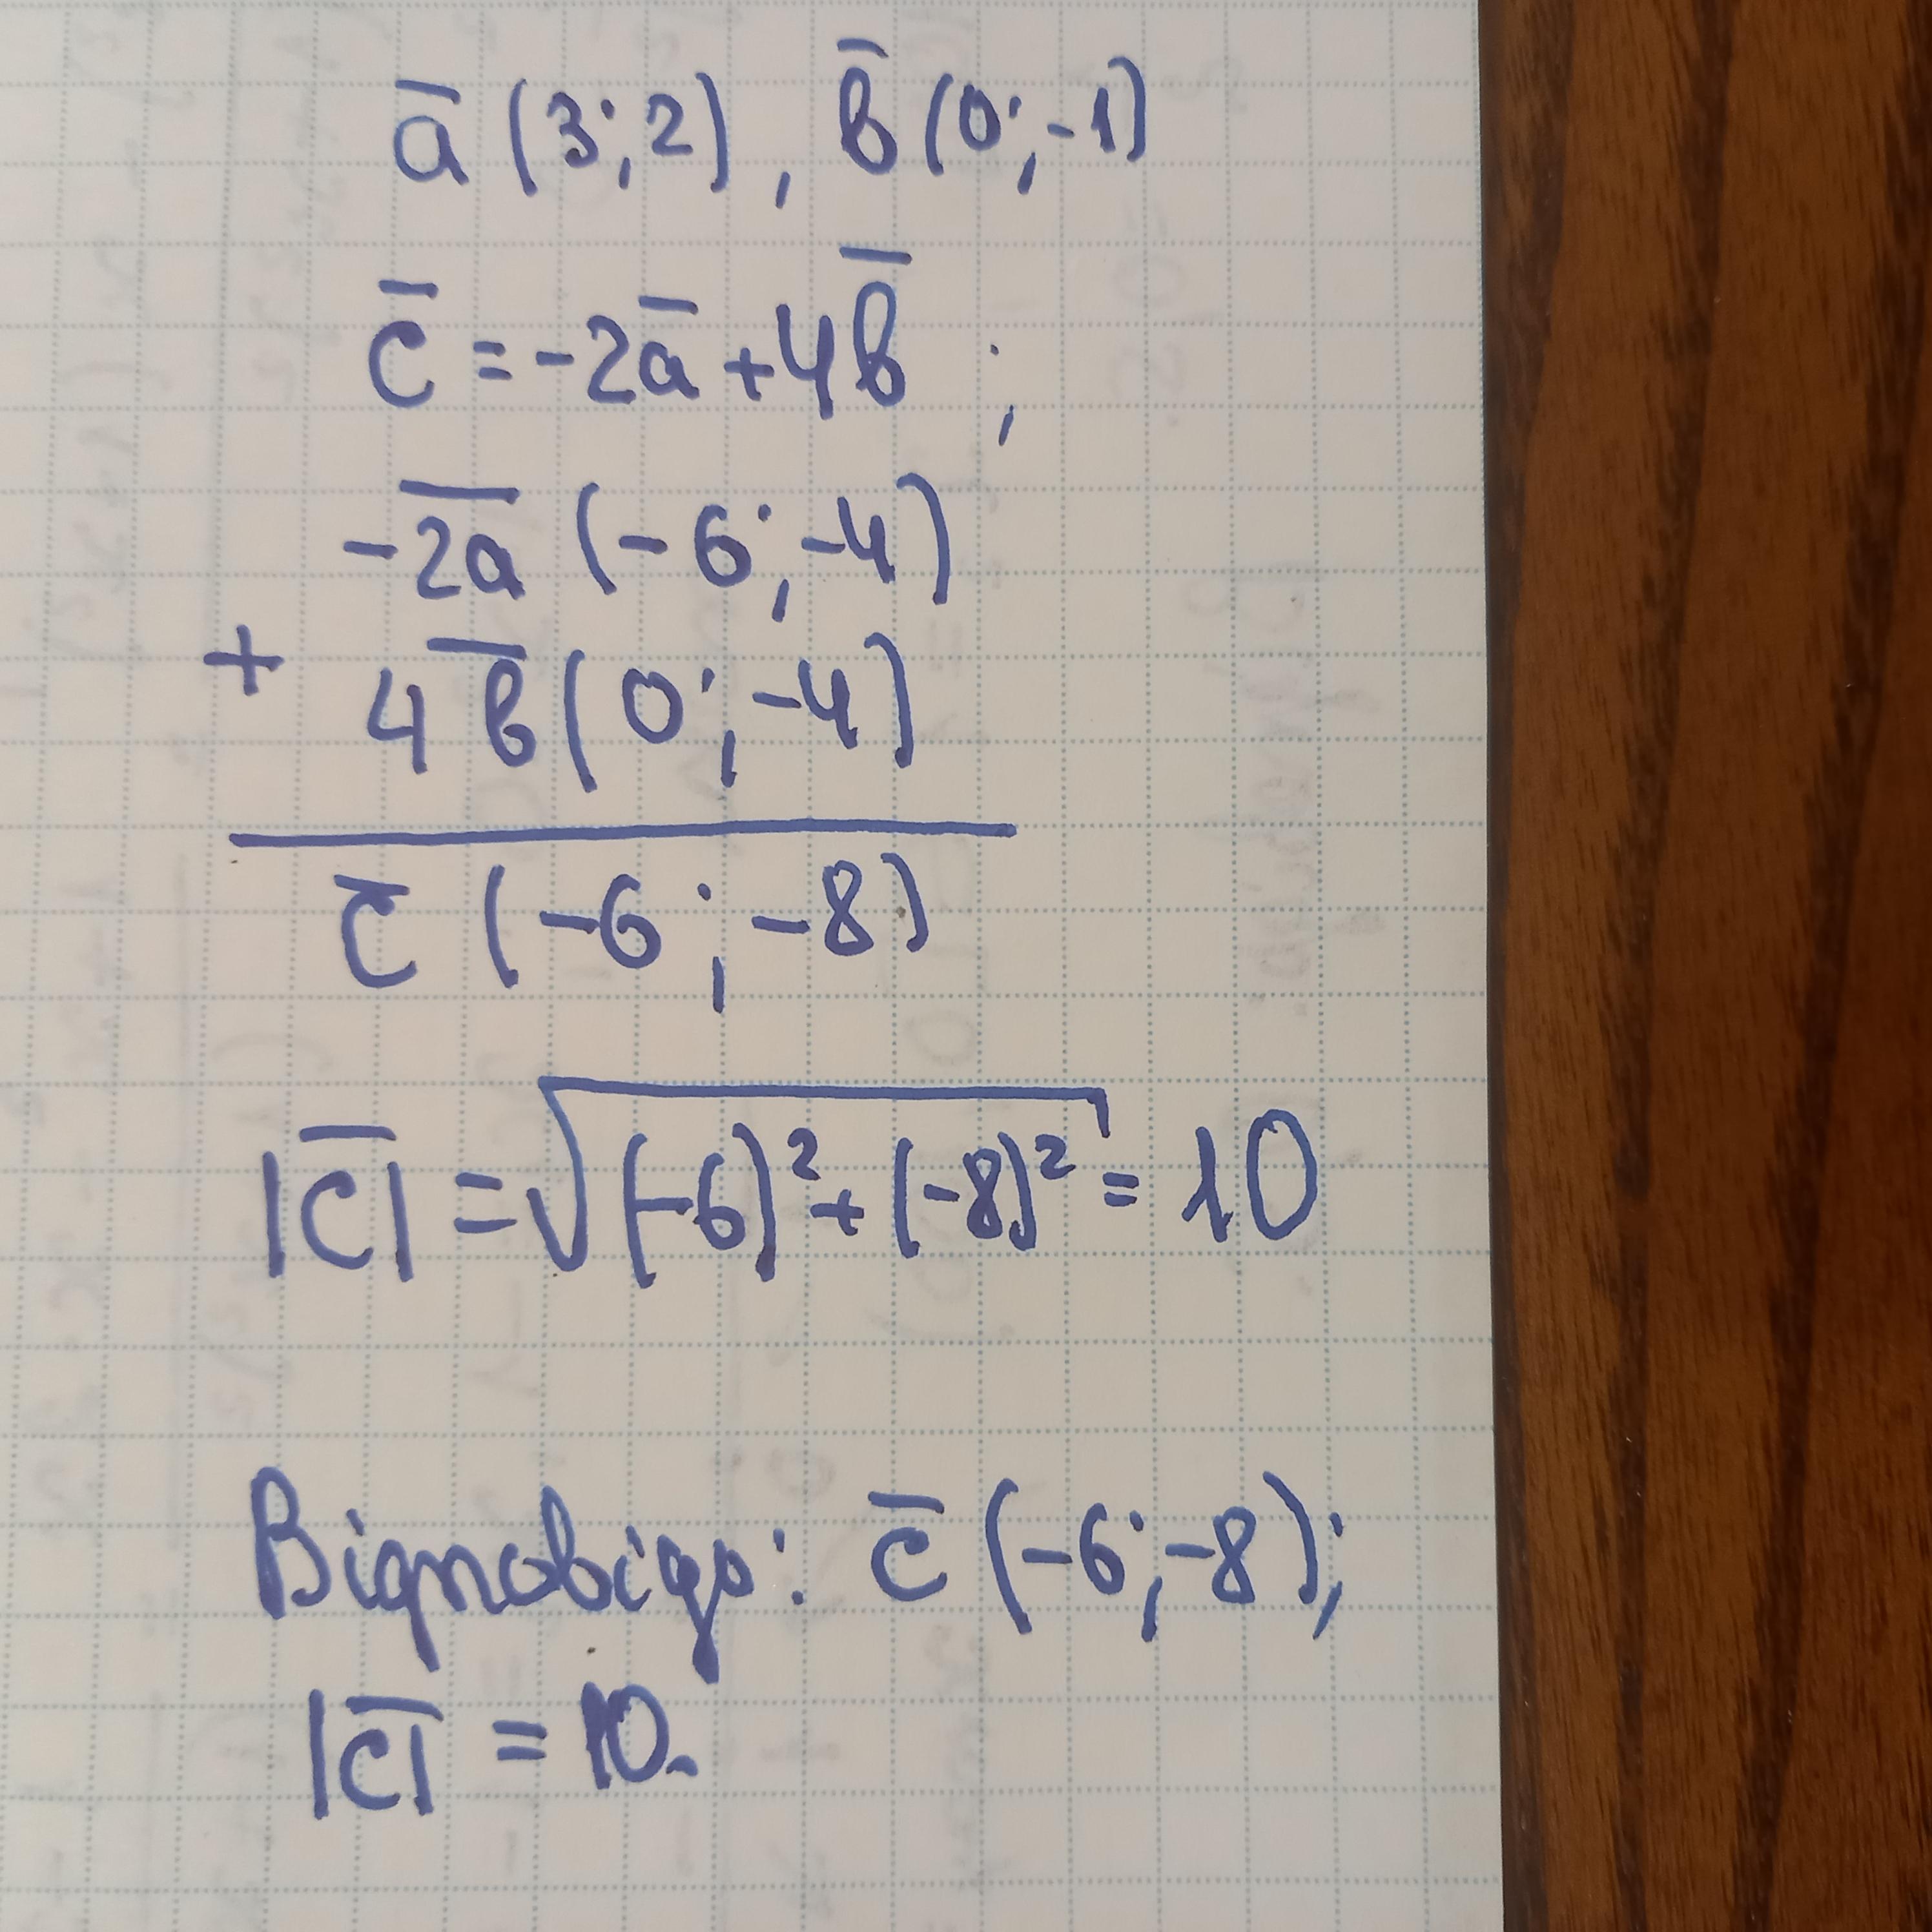 a̅ (3; 2), b̅ (0; -1)
c̅ = -2a̅ + 4b̅ ;
-2a̅ (-6; -4)
+ 4b̅ (0; -4)
c̅ (-6; -8)
|c̅| = √((-6)² + (-8)²) = 10
Відповідь: c̅ (-6; -8);
|c̅| = 10.